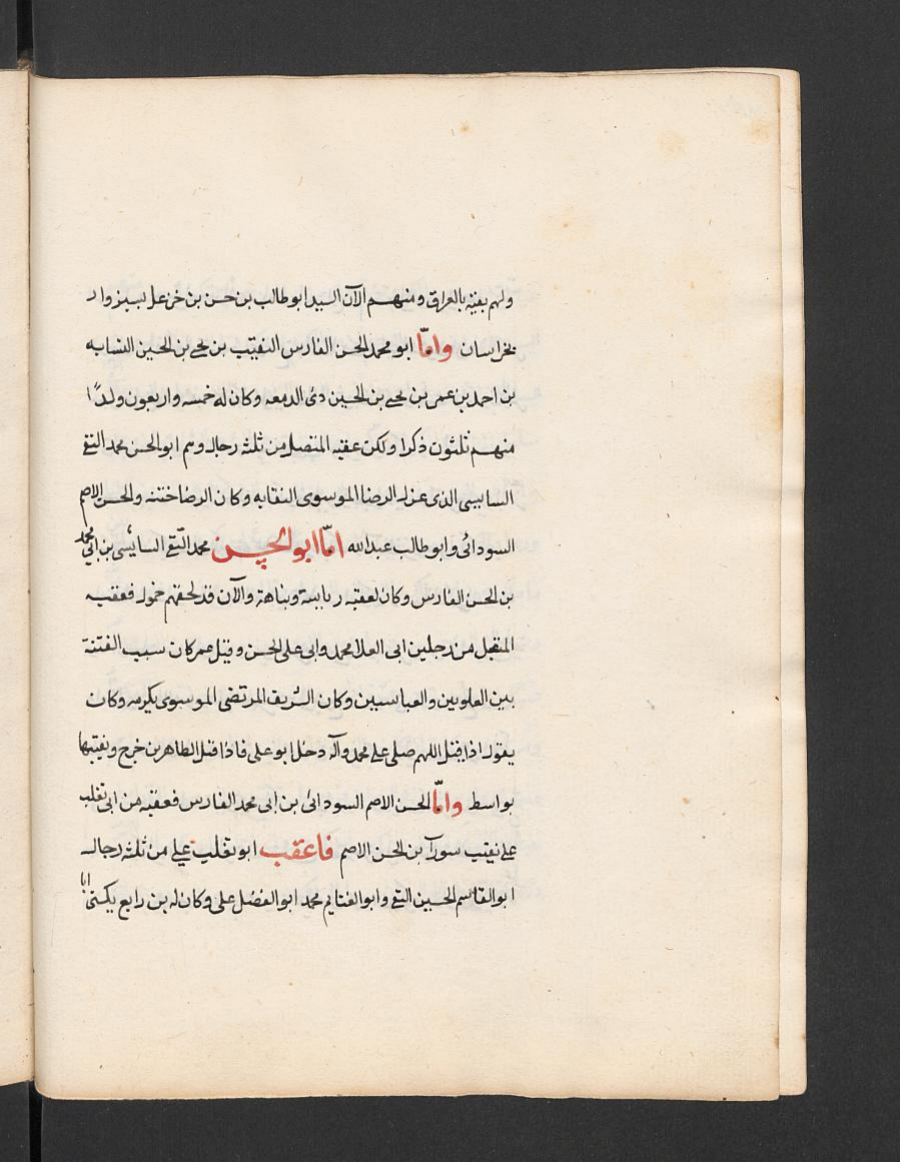 ولهم بقية بالعراق ومنهم الآن السيد ابو طالب بن حسن بن خزعل بسبزوار
بخراسان واما ابو محمد الحسن الفارس النقيب بن يحيى بن الحسين النسابه
بن احمد بن عمر بن يحيى بن الحسين ذى الدمعه وكان له خمسه واربعون ولدًا
منهم ثلثون ذكرا ولكن عقبه المتصل من ثلثه رجال وهم ابو الحسن محمد التقى
السابسى الذى عزل الرضا الموسوى النقابه وكان الرضا ختنه والحسن الاصم
السودائى وابو طالب عبدالله امّا ابو الحسن محمد التّقى السابسى بن ابى محمد
بن الحسن الفارس وكان لعقبه رياسة ونباهة والآن قد لحقهم خمول فعقبه
المتصل من رجلين ابى العلا محمد وابى على الحسن وقيل عمر كان سبب الفتنة
بين العلويين والعباسيين وكان الشريف المرتضى الموسوى يكرمه وكان
يقول اذا قيل اللهم صلى على محمد وآله دخل ابو على فاذا قيل الطاهرين خرج ونقيبها
بواسط وامّا الحسن الاصم السودائى بن ابى محمد الفارس فعقبه من ابى تغلب
على نقيب سورآ بن الحسن الاصم فاعقب ابو تغلب على من ثلثه رجال
ابو القاسم الحسين التقى وابو الغنايم محمد ابو الفضل على وكان له بن رابع يكنى ابا